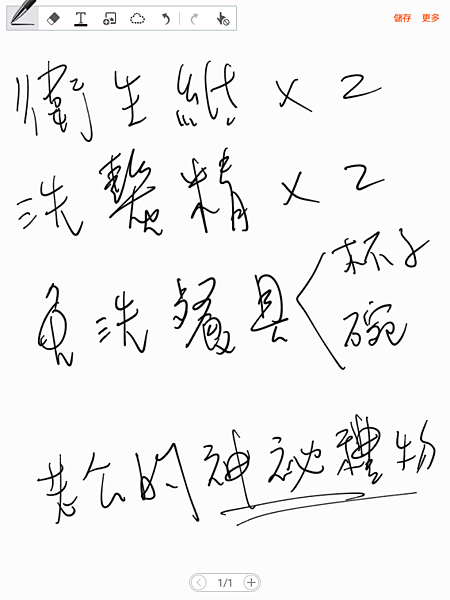 儲存 更多
衛生紙 x 2
洗髮精 x 2
免洗餐具 杯子
碗
老公的神祕禮物
1/1